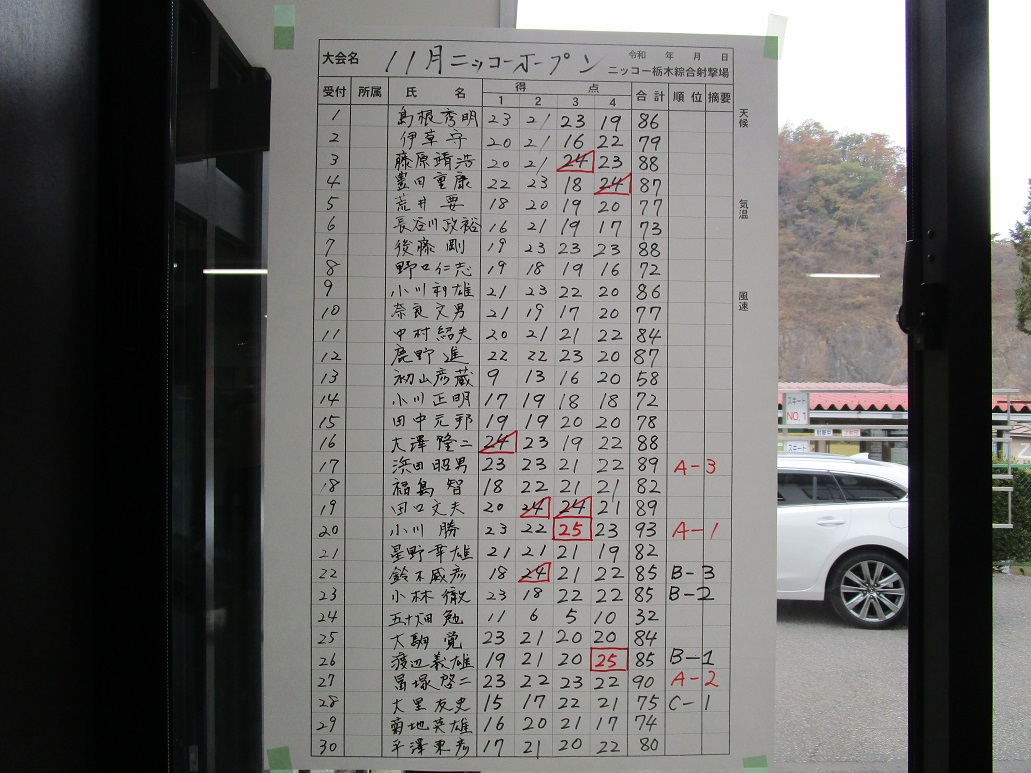 大会名 11月ニッコーオープン 令和 年 月 日
ニッコー栃木綜合射撃場
受付 所属 氏名 得点 合計 順位 摘要
1 2 3 4
1 島根秀明 23 21 23 19 86
2 伊草守 20 21 16 22 79
3 藤原靖浩 20 21 24 23 88
4 豊田重康 22 23 18 24 87
5 荒井要 18 20 19 20 77
6 長谷川政裕 16 21 19 17 73
7 後藤剛 19 23 23 23 88
8 野口仁志 19 18 19 16 72
9 小川利雄 21 23 22 20 86
10 奈良文男 21 19 17 20 77
11 中村紹夫 20 21 21 22 84
12 鹿野進 22 22 23 20 87
13 初山彦蔵 9 13 16 20 58
14 小川正明 17 19 18 18 72
15 田中元邦 19 19 20 20 78
16 大澤隆二 24 23 19 22 88
17 浜田昭男 23 23 21 22 89 A-3
18 福島智 18 22 21 21 82
19 田口文夫 20 24 24 21 89
20 小川勝 23 22 25 23 93 A-1
21 星野幸雄 21 21 21 19 82
22 鈴木威彦 18 24 21 22 85 B-3
23 小林徹 23 18 22 22 85 B-2
24 五十畑勉 11 6 5 10 32
25 大駒覚 23 21 20 20 84
26 渡辺義雄 19 21 20 25 85 B-1
27 冨塚啓二 23 22 23 22 90 A-2
28 大里友史 15 17 22 21 75 C-1
29 菊地英雄 16 20 21 17 74
30 平澤東彦 17 21 20 22 80
天候
気温
風速
スキート
NO.1
スキート